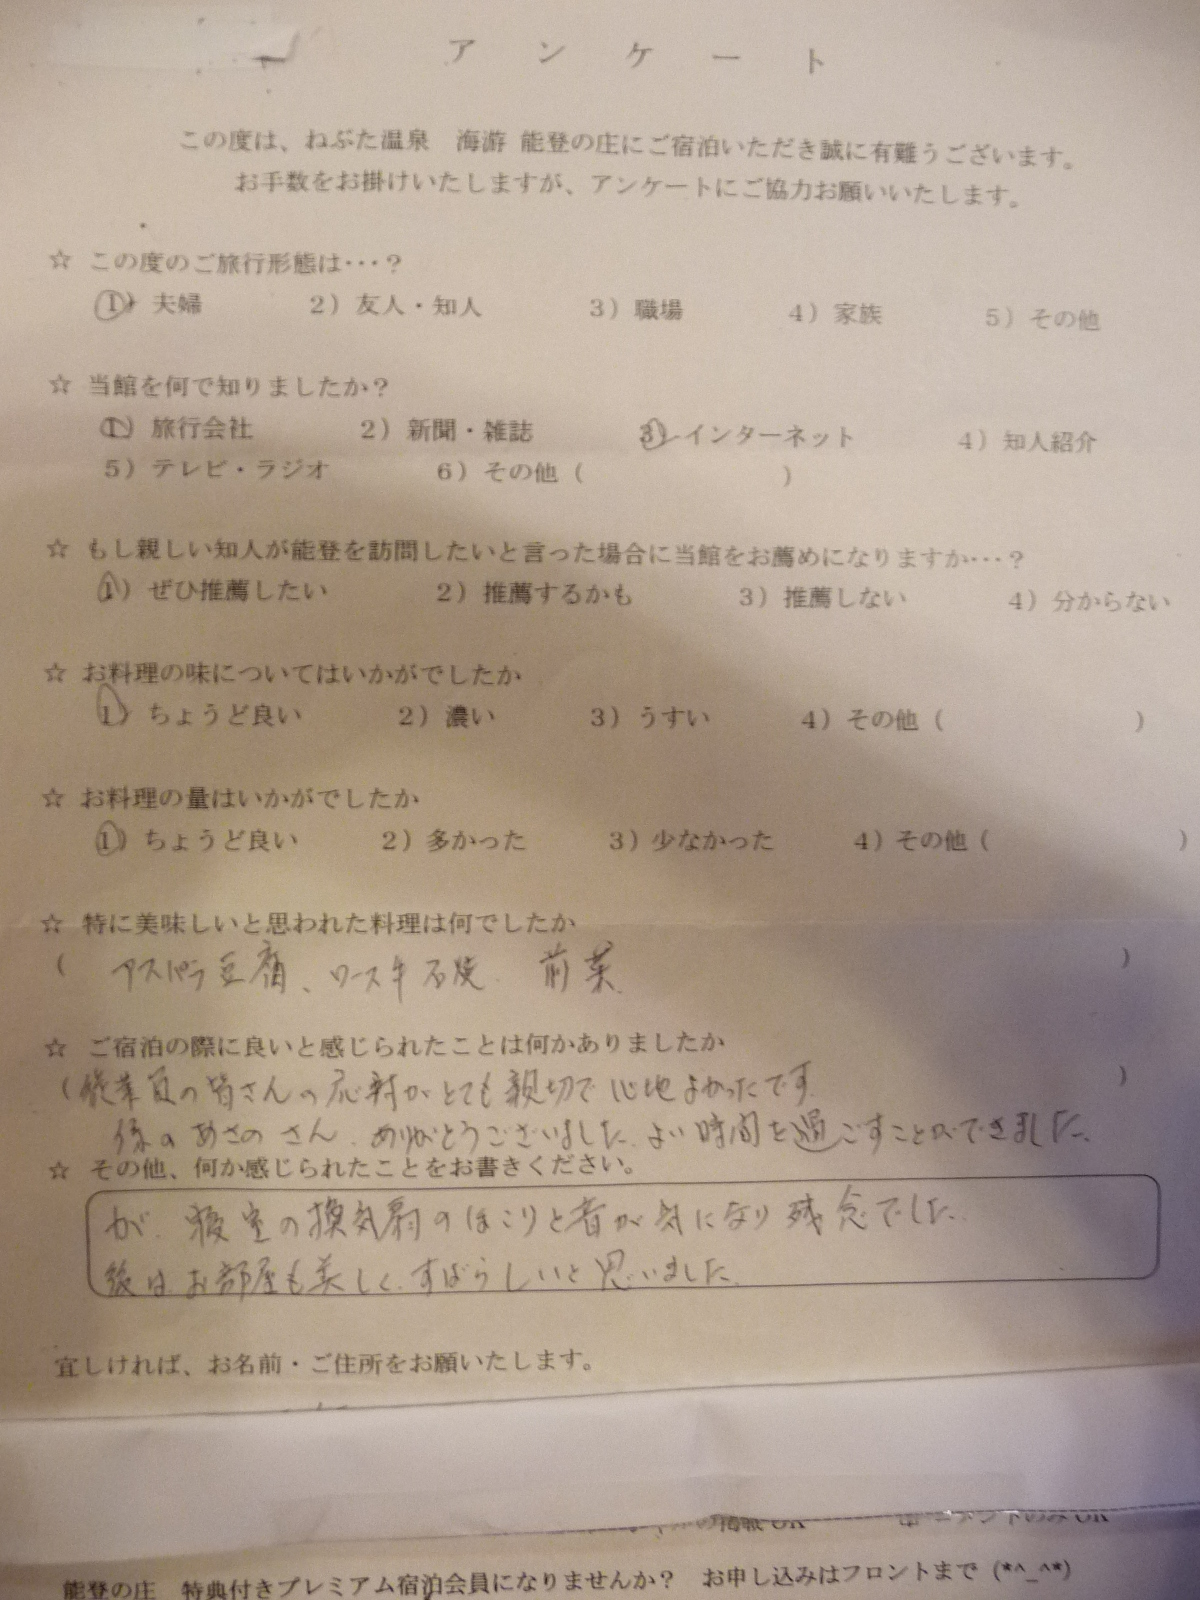 アンケート
この度は、ねぶた温泉 海游 能登の庄にご宿泊いただき誠に有難うございます。
お手数をお掛けいたしますが、アンケートにご協力お願いいたします。
☆ この度のご旅行形態は・・・？
1）夫婦 2）友人・知人 3）職場 4）家族 5）その他
☆ 当館を何で知りましたか？
1）旅行会社 2）新聞・雑誌 3）インターネット 4）知人紹介
5）テレビ・ラジオ 6）その他（ ）
☆ もし親しい知人が能登を訪問したいと言った場合に当館をお薦めになりますか・・・？
1）ぜひ推薦したい 2）推薦するかも 3）推薦しない 4）分からない
☆ お料理の味についてはいかがでしたか
1）ちょうど良い 2）濃い 3）うすい 4）その他（ ）
☆ お料理の量はいかがでしたか
1）ちょうど良い 2）多かった 3）少なかった 4）その他（ ）
☆ 特に美味しいと思われた料理は何でしたか
（ アスパラ豆腐、ロース牛石焼. 前菜 ）
☆ ご宿泊の際に良いと感じられたことは何かありましたか
（従業員の皆さんの応対がとても親切で心地よかったです. ）
係のあさのさん、ありがとうございました、よい時間を過ごすことができました、
☆ その他、何か感じられたことをお書きください。
が、寝室の換気扇のほこりと音が気になり残念でした.
後はお部屋も美しく、すばらしいと思いました、
宜しければ、お名前・ご住所をお願いたします。
能登の庄 特典付きプレミアム宿泊会員になりませんか？ お申し込みはフロントまで (*^_^*)